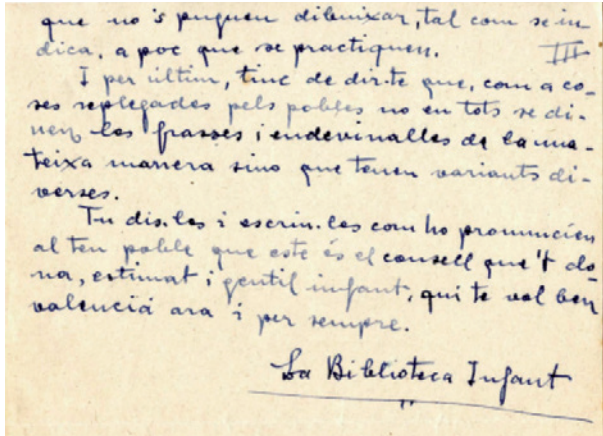 que no's puguen dibuixar, tal com se in-
dica, a poc que se practiquen. III
I per últim, tinc de dir-te que, com a co-
ses replegades pels pobles no en tots se di-
uen les frasses i endevinalles de la ma-
teixa manera sino que tenen variants di-
verses.
Tu dis-les i escriu-les com ho pronuncien
al teu poble que este és el consell que't do-
na, estimat i gentil infant, qui te vol ben
valenciá ara i per sempre.
La Biblioteca Infant